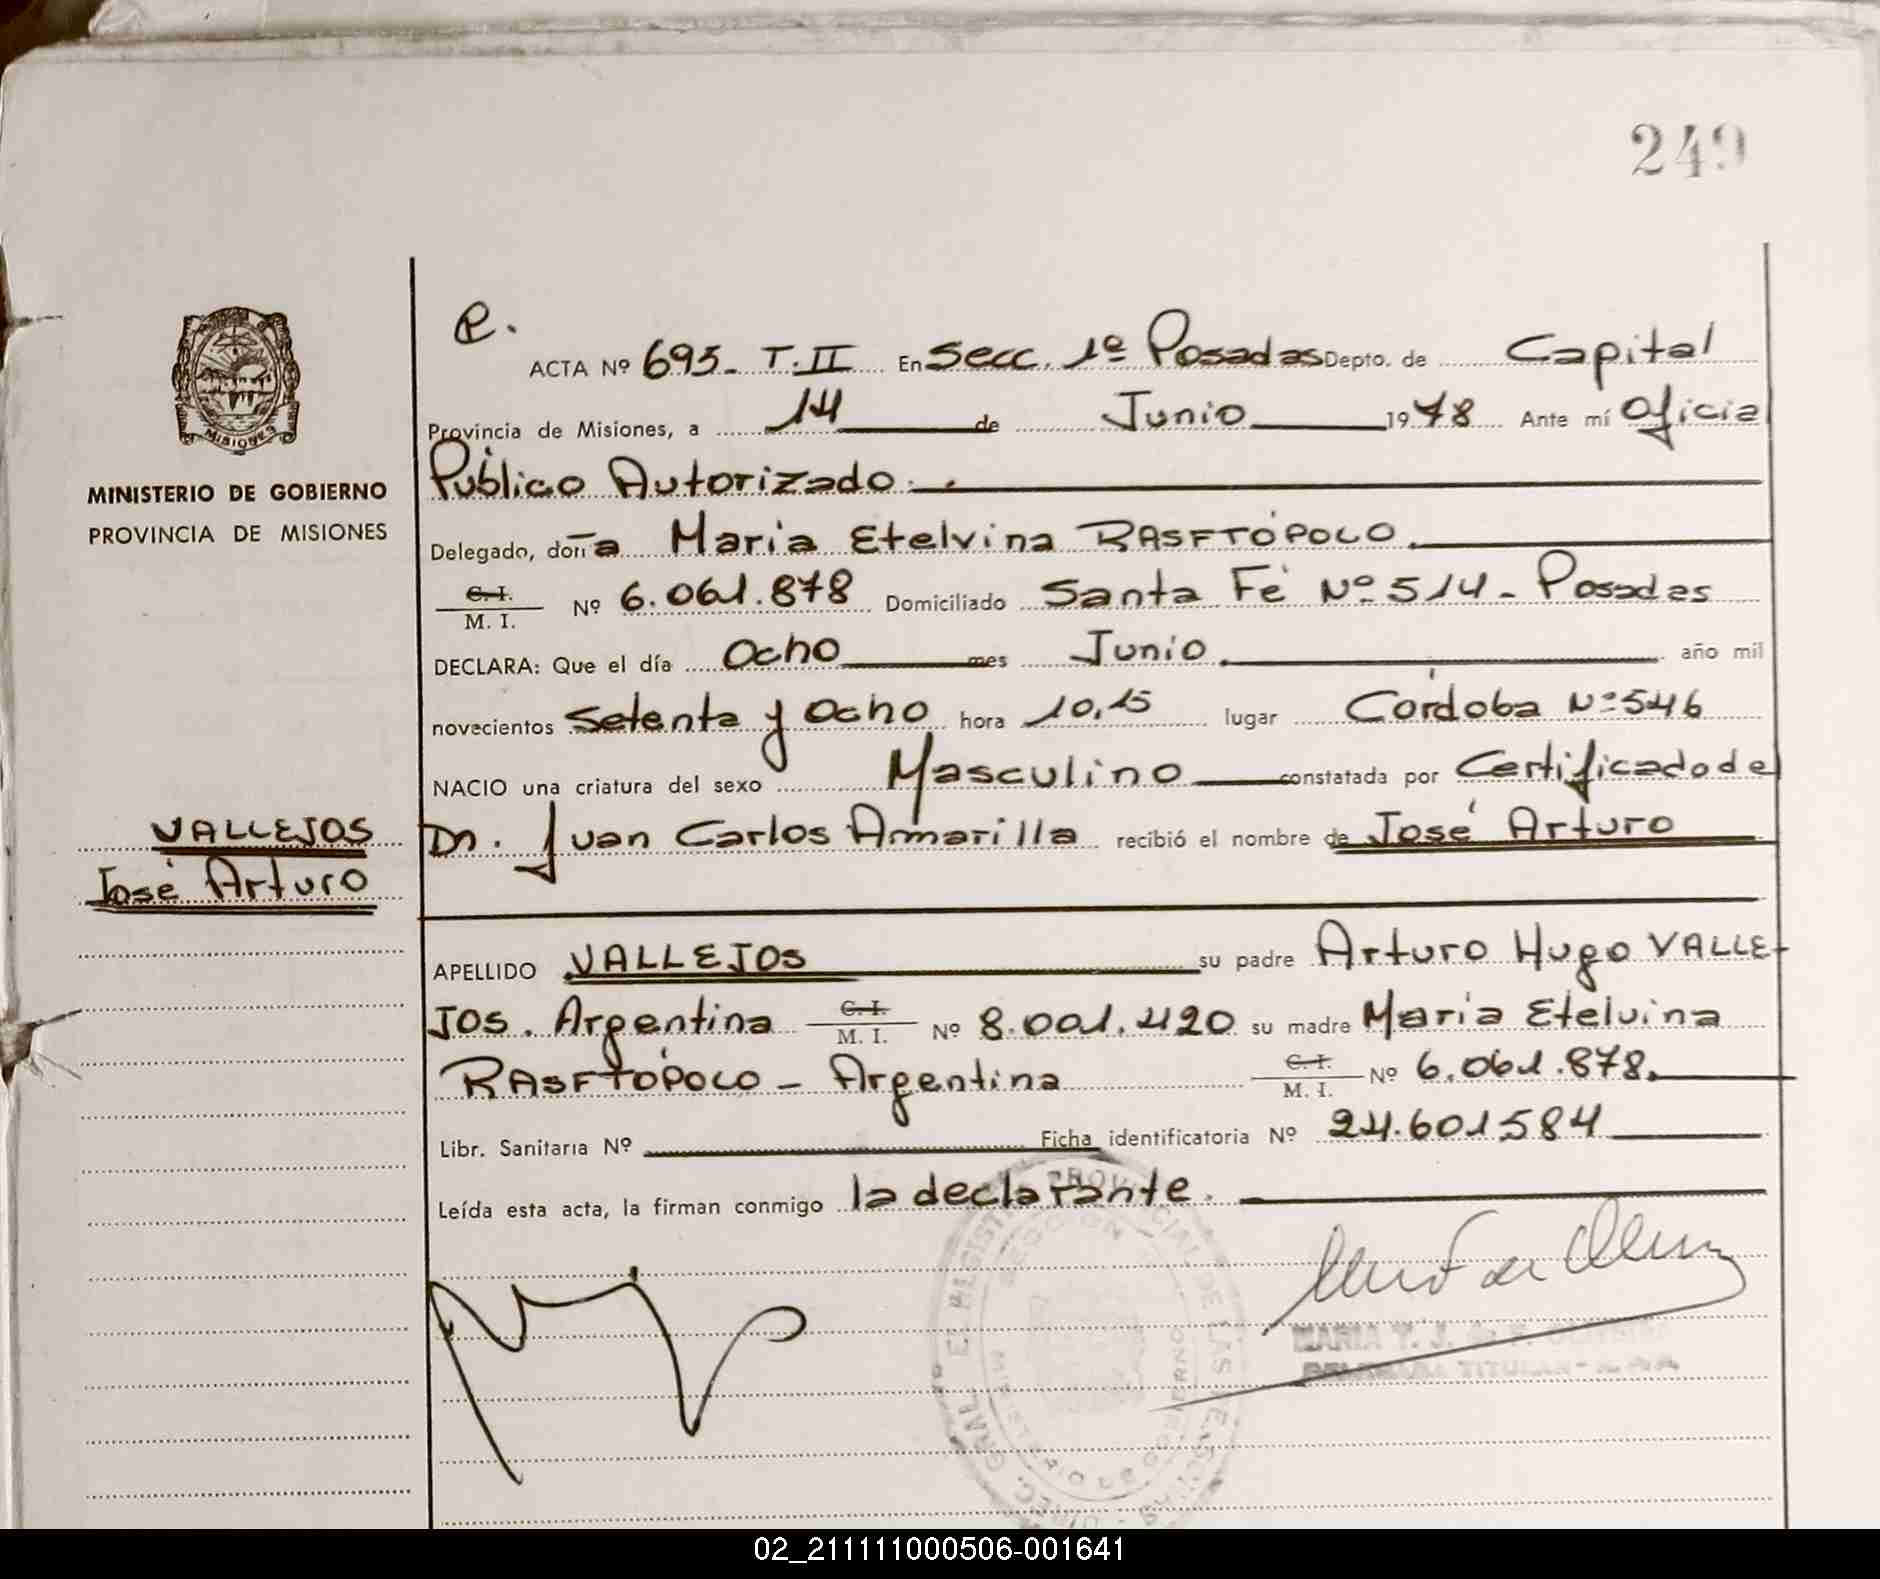 249
e.
ACTA Nº 695. T. II En Secc. 1º Posadas Depto. de Capital
Provincia de Misiones, a 14 de Junio 1978 Ante mí Oficial
Público Autorizado.
Delegado, doña María Etelvina RASFTÓPOLO.
C. I. M. I. Nº 6.061.878 Domiciliado Santa Fé Nº 514 - Posadas
DECLARA: Que el día Ocho mes Junio año mil
novecientos Setenta y Ocho hora 10,15 lugar Córdoba Nº 546
NACIO una criatura del sexo Masculino constatada por Certificado del
Dr. Juan Carlos Amarilla recibió el nombre de José Arturo
APELLIDO VALLEJOS su padre Arturo Hugo VALLE-
JOS. Argentina C. I. M. I. Nº 8.001.420 su madre María Etelvina
RASFTÓPOLO - Argentina C. I. M. I. Nº 6.061.878.
Libr. Sanitaria Nº Ficha identificatoria Nº 24.601.584
Leída esta acta, la firman conmigo la declarante.
MISIONES
MINISTERIO DE GOBIERNO
PROVINCIA DE MISIONES
VALLEJOS
José Arturo
MARIA T. J.
TITULAR
02_211111000506-001641